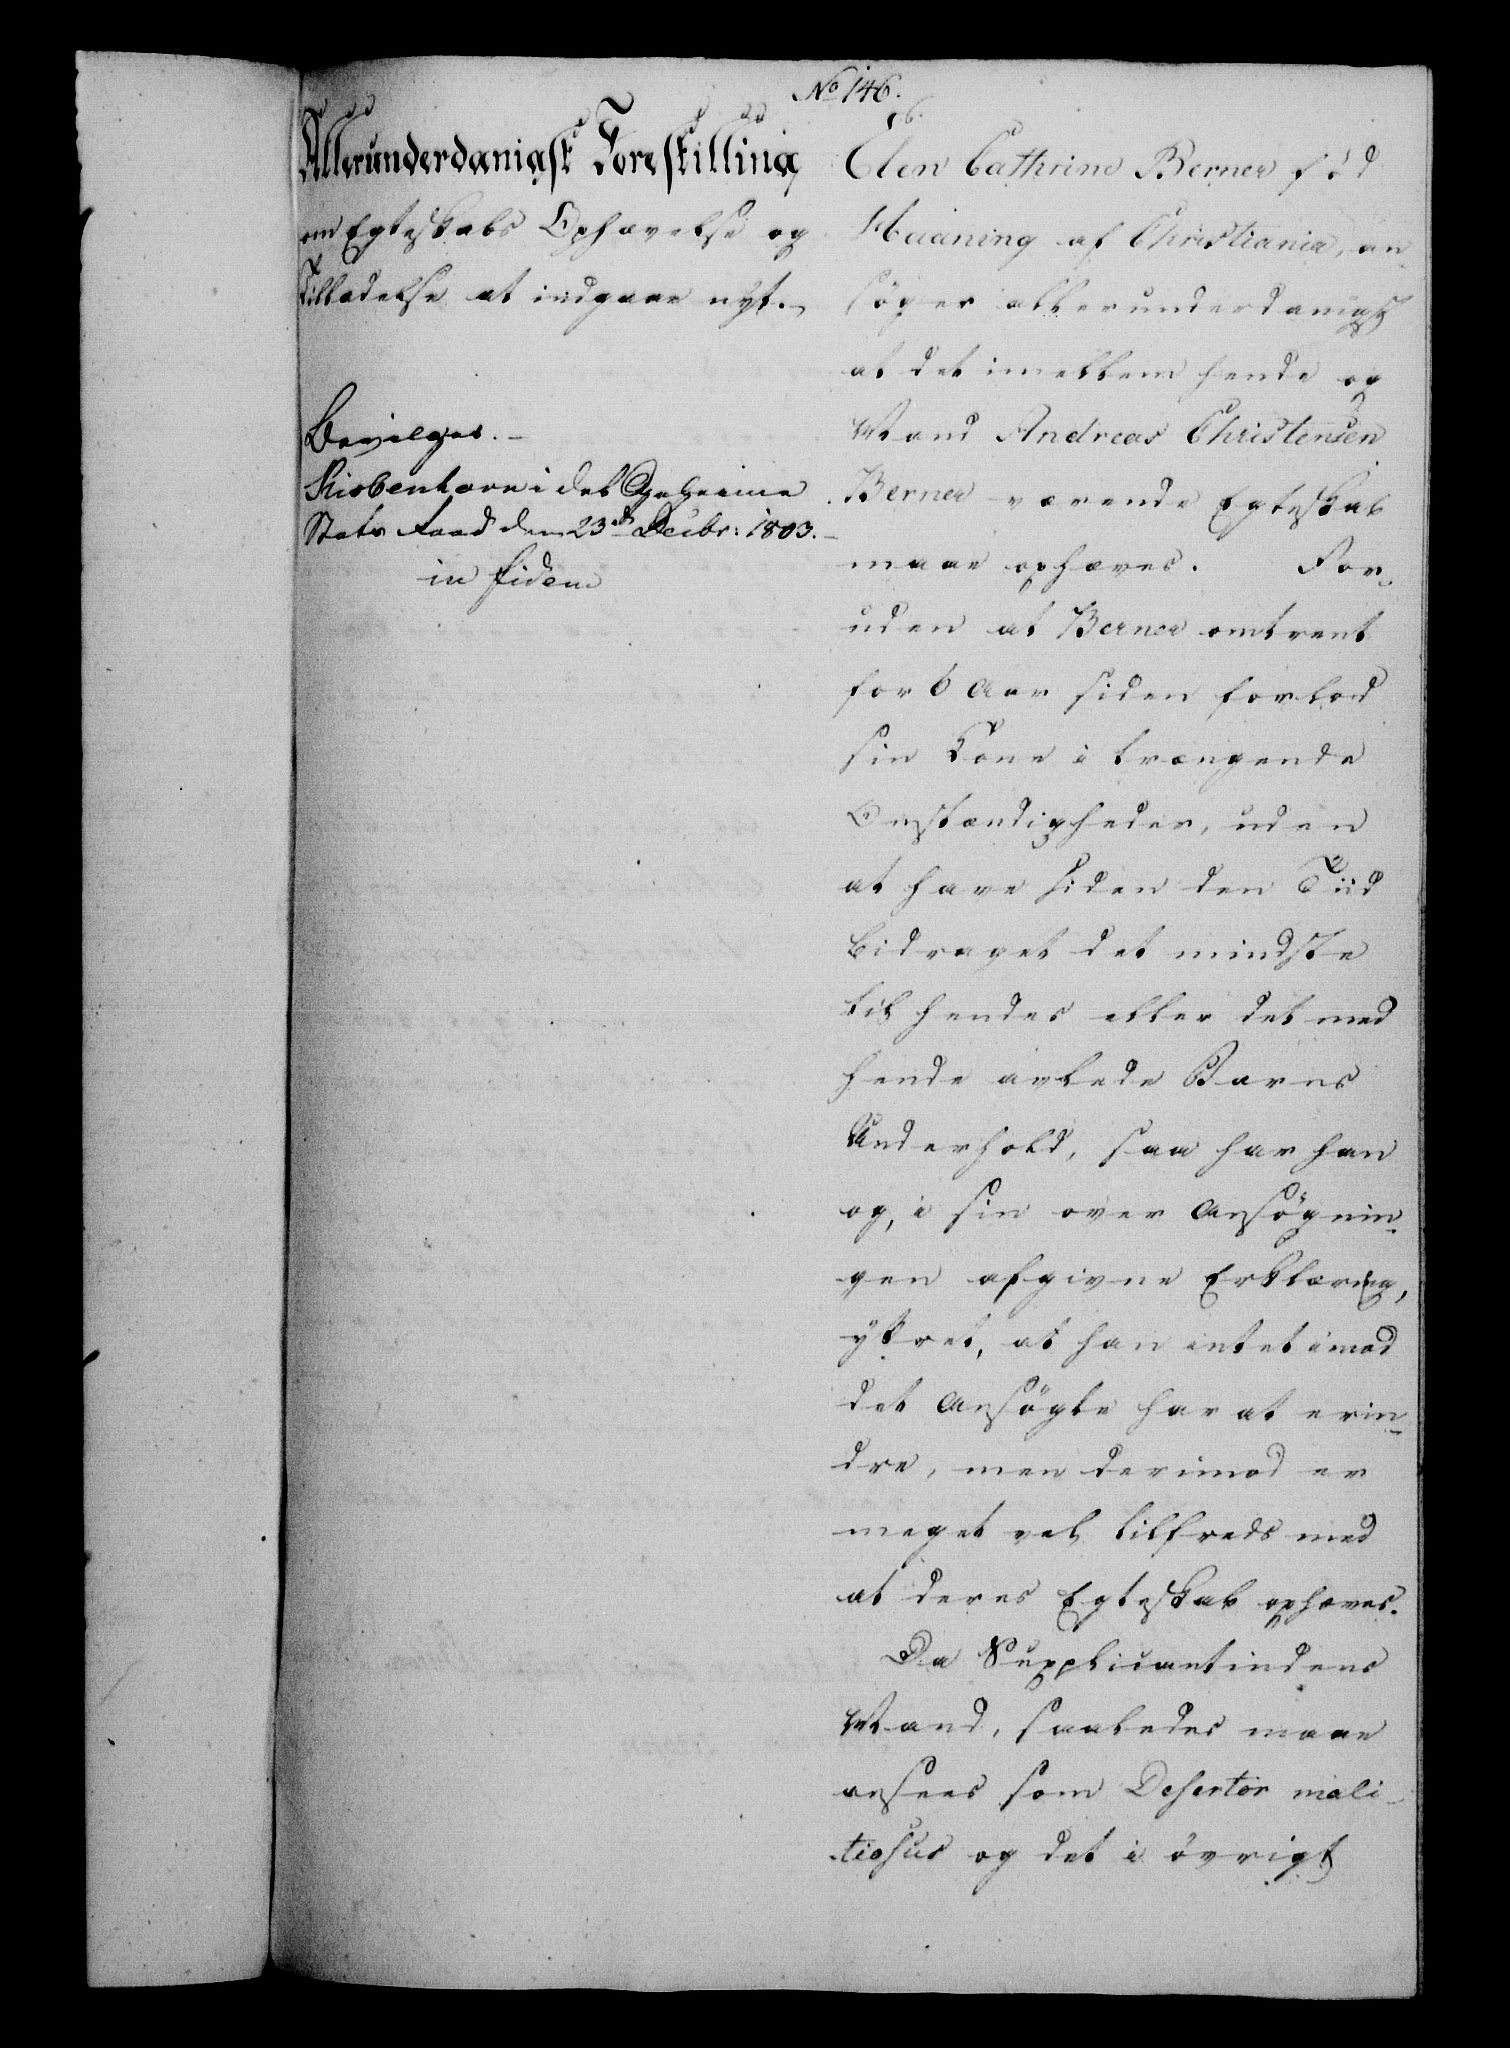 No 146.
Allerunderdanigst Forestilling
om Egteskabs Ophævelse og
Tilladelse at indgaae nyt.
Bevilges.
Kiøbenhavn i det Geheime
Stats Raad den 23de Decbr: 1803.
in fidem
Elen Cathrine Berner fød
Haaning af Christiania, an-
søger allerunderdanigst
at det imellem hende og
Mand Andreas Christensen
Berner værende Egteskab
maae ophæves. For-
uden at Berner omtrent
for 6 Aar siden forlod
sin Kone i trængende
Omstændigheder, uden
at have siden den Tiid
bidraget det mindste
til hendes eller det med
hende avlede Barns
Underhold, saa har han
og, i sin over Ansøgnin-
gen afgivne Erklæring,
yttret, at han intet imod
det Ansøgte har at erin-
dre, men derimod er
meget vel tilfreds med
at deres Egteskab ophæves.
Da Supplicantindens
Mand, saaledes maae
ansees som Desertor mali-
tiosus og det i øvrigt